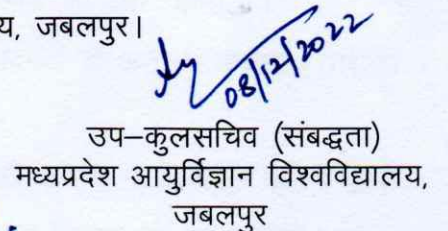 य, जबलपुर।
08/12/2022
उप–कुलसचिव (संबद्धता)
मध्यप्रदेश आयुर्विज्ञान विश्वविद्यालय,
जबलपुर